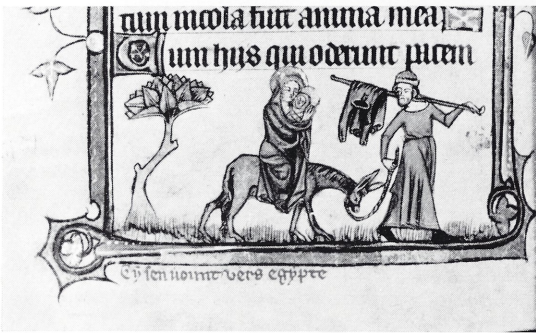 tum incola fuit anima mea
Cum hiis qui oderunt pacem
Cy sen uount vers egypte